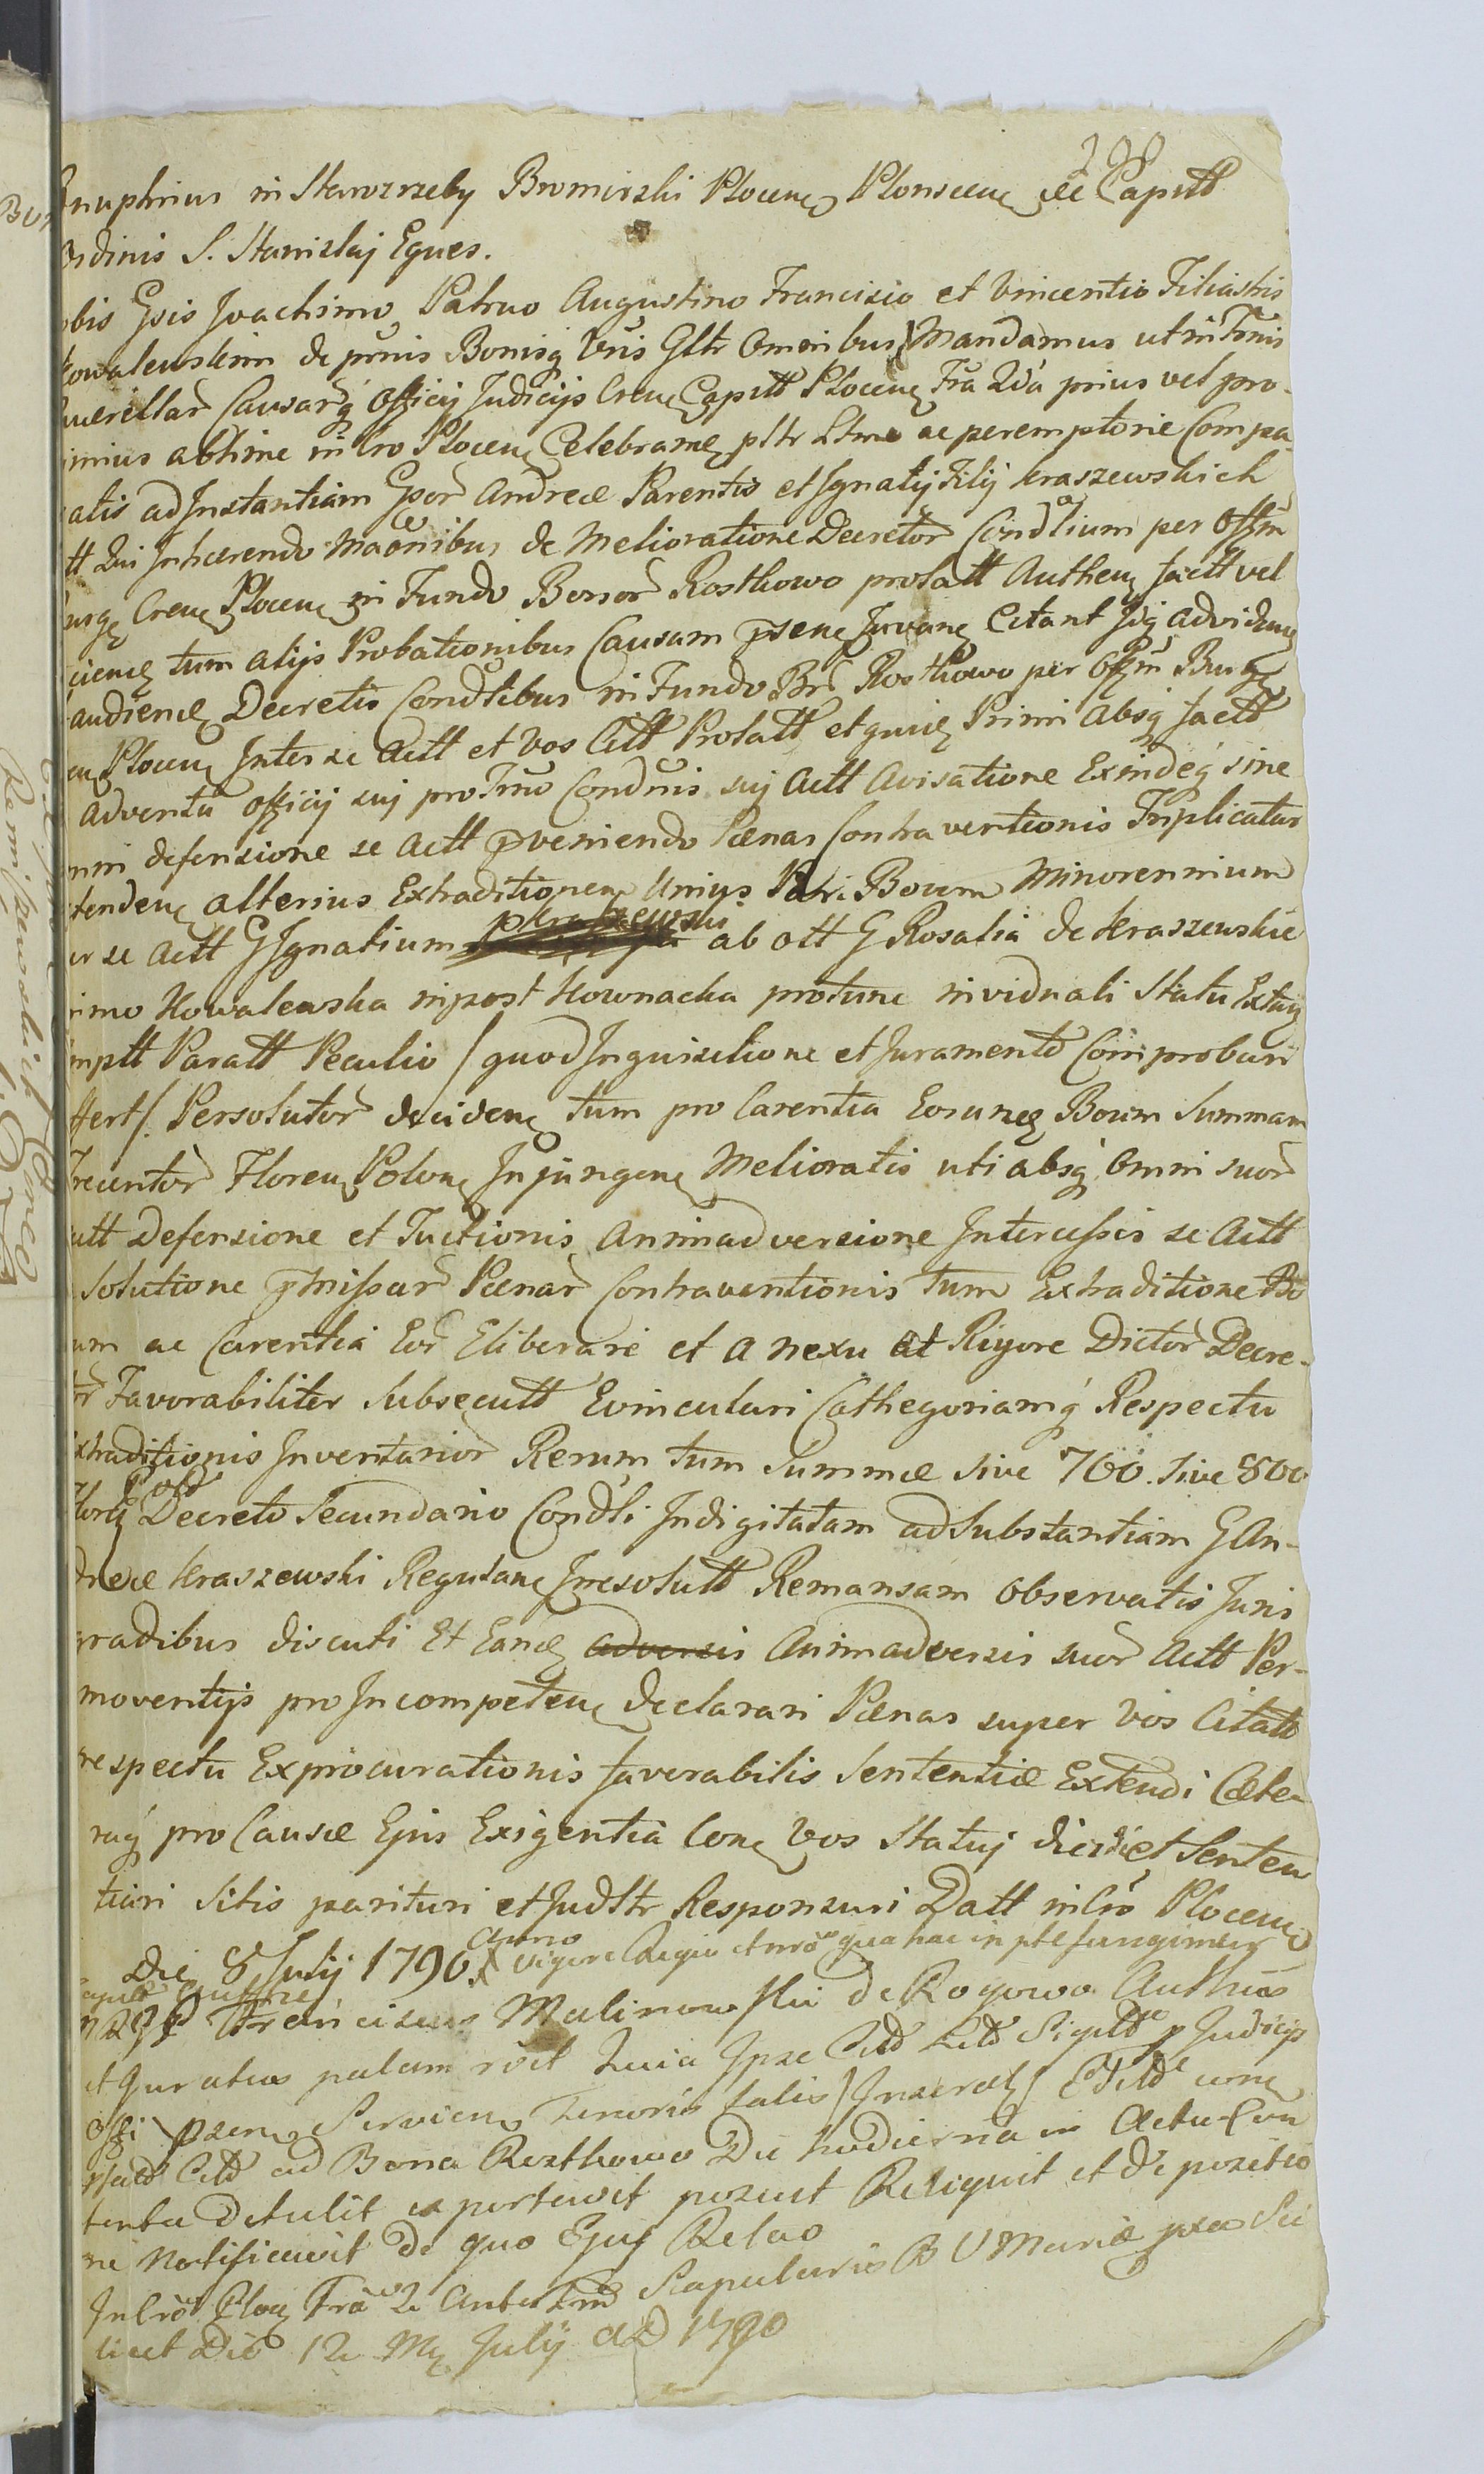 208
nuphrius in Starozrzeby Bromirski Plocen Plonscen &c Captt
Ordinis S. Stanislaj Eques.
obis Gsis Joachimo Patruo Augustino Francisco et Vincentio Filiastris
Kowalewskim de prmis Bonisq Vris Gltr Omnibus Mandamus ut in Trnis
uerellar Causarq Officij Judicijs Cren Captt Plocen Fra 2da prius vel pro-
imius abhinc in Cro Plocen Celebran pltr Ltme ac peremptorie Compa
atis ad Instantiam Gsor Andreæ Parentis et Ignatij Filij Kraszewskich
tt Qui Inhærendo Maonibus de Melioratione Decretor Condlium per Offm
urg Cren Plocen in Fundo Bonor Rostkowo prolatt Authen Jactt vel
ciend tum alijs Probationibus Causam psen Juvan Citant Idq advidend
audiend Decretis Condlibus in Fundo Br Rostkowo per Offm Burg
en Plocen Inter se Actt et Vos Citt Prolatt et quid Primi Absq Jactt
adventu Officij suj pro Trno Condnis suj Actt Avisatione Exindeq sine
mni defensione se Actt pveniendo Pænas Contraventionis Triplicatas
tenden alterius Extraditionem Unius Paris Boum Minorennium
er se Actt G Ignatium Kraszewski ab ott G Rosalia de Kraszewskie
imo Kowalewska in post Kownacka pro tunc in viduali Statu Extan
mptt Paratt Peculio / quod Inquisitione et Juramento Comprobari
ffert /. Persolutor deciden tum pro Carentia Eorund Boum Summam
Trecentor Floren Polon Injungen Melioratis uti absq Omni suor
Actt Defensione et Tuitionis Animadversione Intercessis se Actt
solutione pmissar Pænar Contraventionis tum Extraditione Bo
um ac Carentia Eor Eliberari et a nexu at Rigore Dictor Decre-
tor Favorabiliter Subsecutt Evinculari Cathegoriamq Respectu
xtraditionis Inventarior Rerum tum Summæ sive 700. sive 800
Flor Decreto Secundario Condli Indigitatam ad Substantiam G An-
dreæ Kraszewski Regulan Irresolutt Remansam observatis Juris
gradibus discuti Et Eand adversis Animadversis suor Actt Per-
moventijs pro Incompeten declarari Pænas super Vos Citatt
respectu Exprocurationis favorabilis Sententiæ Extendi Cæte-
raq pro Causæ Ejus Exigentia Con Vos Statuj dici et Senten
tiari Sitis parituri et Judltr Responsuri Datt in Cro Plocen
Die 8 Julij 1790. Anno vigore Regio et nro qua hac in pte fungimur
Franciscus Malinowski de Rogowo Authus
et Juratus palam roit Quia Ipse Citt Litt Sigilltt p Judicijs
offi psen Servien tenoris talis / Inseratr /
Citt ad Bona Rostkowo Die hodierna in Actu Con
tenta Detulit exportavit posuit Reliquit et de positio
ne Notificavit de quo Ejus Relao
In Cro Ploc Fra 2 ante Festm Scapularis B V Mariæ prox Sci
licet Die 12 Ms Julij AD 1790